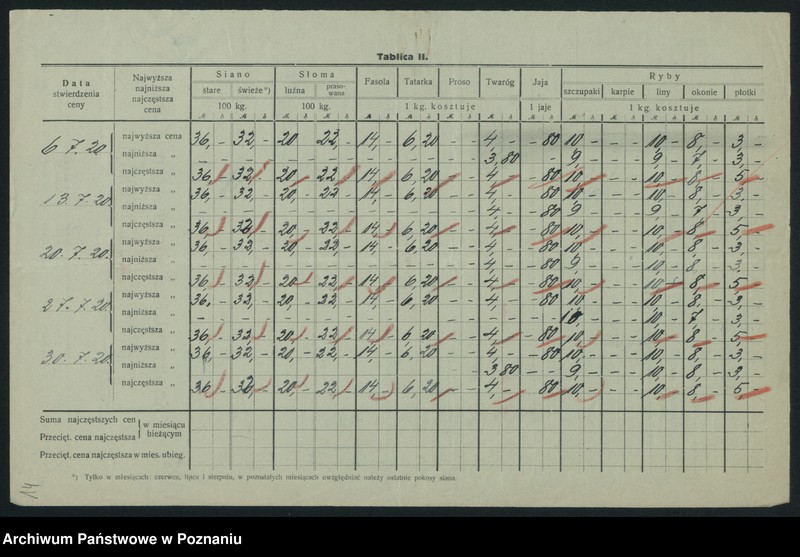 Tablica II.
Data stwierdzenia ceny | Najwyższa najniższa najczęstsza cena | Siano | Słoma | Fasola | Tatarka | Proso | Twaróg | Jaja | Ryby
stare | świeże*) | luźna | prasowana | szczupaki | karpie | liny | okonie | płotki
100 kg. | 100 kg. | 1 kg. kosztuje | 1 jaje | 1 kg. kosztuje
6.7.20. | najwyższa cena | 36,- | 32,- | 20 | 22,- | 14,- | 6,20 | - - | 4,- | -80 | 10,- | - - | 10,- | 8,- | 3,-
najniższa „ | 3,80 | 9,- | - - | 9,- | 7,- | 3,-
najczęstsza „ | 36,- | 32,- | 20,- | 22,- | 14,- | 6,20 | - - | 4,- | -80 | 10,- | - - | 10,- | 8,- | 5-
13.7.20. | najwyższa „ | 36,- | 32,- | 20,- | 22- | 14,- | 6,20 | - - | 4,- | -80 | 10,- | - - | 10,- | 8,- | 3,-
najniższa „ | 4,- | -80 | 9 | - - | 9,- | 7,- | 3,-
najczęstsza „ | 36,- | 32,- | 20,- | 22,- | 14,- | 6,20 | - - | 4,- | -80 | 10,- | - - | 10,- | 8,- | 5-
20.7.20. | najwyższa „ | 36,- | 32,- | 20,- | 22,- | 14,- | 6,20 | - - | 4,- | -80 | 10,- | - - | 10,- | 8,- | 3,-
najniższa „ | 4,- | -80 | 9,- | - - | 10,- | 8,- | 3,-
najczęstsza „ | 36,- | 32,- | 20- | 22,- | 14,- | 6,20 | - - | 4,- | -80 | 10,- | - - | 10,- | 8,- | 5-
27.7.20. | najwyższa „ | 36,- | 32,- | 20,- | 22,- | 14,- | 6,20 | - - | 4,- | -80 | 10,- | - - | 10,- | 8,- | 3,-
najniższa „ | 10,- | 7,- | 3,-
najczęstsza „ | 36,- | 32,- | 20,- | 22,- | 14,- | 6,20 | - - | 4,- | -80 | 10,- | - - | 10,- | 8,- | 5-
30.7.20. | najwyższa „ | 36,- | 32,- | 20,- | 22,- | 14,- | 6,20 | - - | 4,- | -80 | 10,- | - - | 10,- | 8,- | 3,-
najniższa „ | 3,80 | 9,- | - - | 10,- | 8,- | 3,-
najczęstsza „ | 36,- | 32,- | 20,- | 22,- | 14,- | 6,20 | - - | 4,- | -80 | 10,- | - - | 10,- | 8,- | 5-
Suma najczęstszych cen
w miesiącu bieżącym
Przecięt. cena najczęstsza
Przecięt. cena najczęstsza w mies. ubieg.
*) Tylko w miesiącach: czerwcu, lipcu i sierpniu, w pozostałych miesiącach uwzględniać należy ostatnie pokosy siana.
14
Archiwum Państwowe w Poznaniu